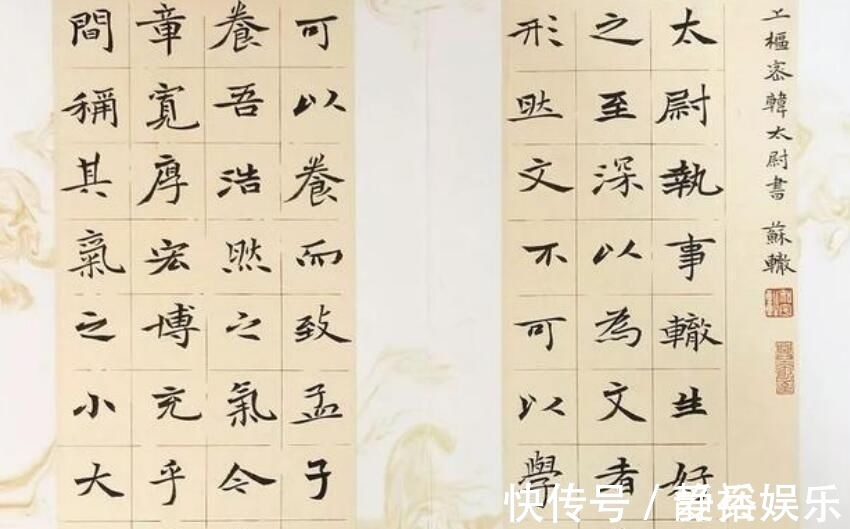 上樞密韓太尉書 蘇轍
太尉執事轍生好
之至深以為文者
形然文不可以學
可以養而致孟子
養吾浩然之氣今
章寬厚宏博充乎
間稱其氣之小大
快传号 / 裕娱乐